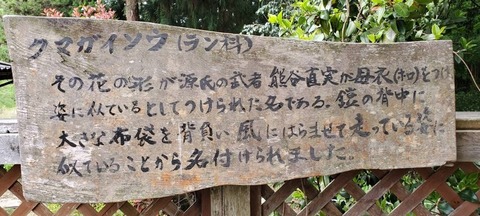 クマガイソウ(ラン科)
その花の形が源氏の武者 熊谷直実が母衣(ホロ)をつけ
姿に似ているとしてつけられた名である。鎧の背中に
大きな布袋を背負い 風にはらませて走っている姿に
似ていることから名付けられました。